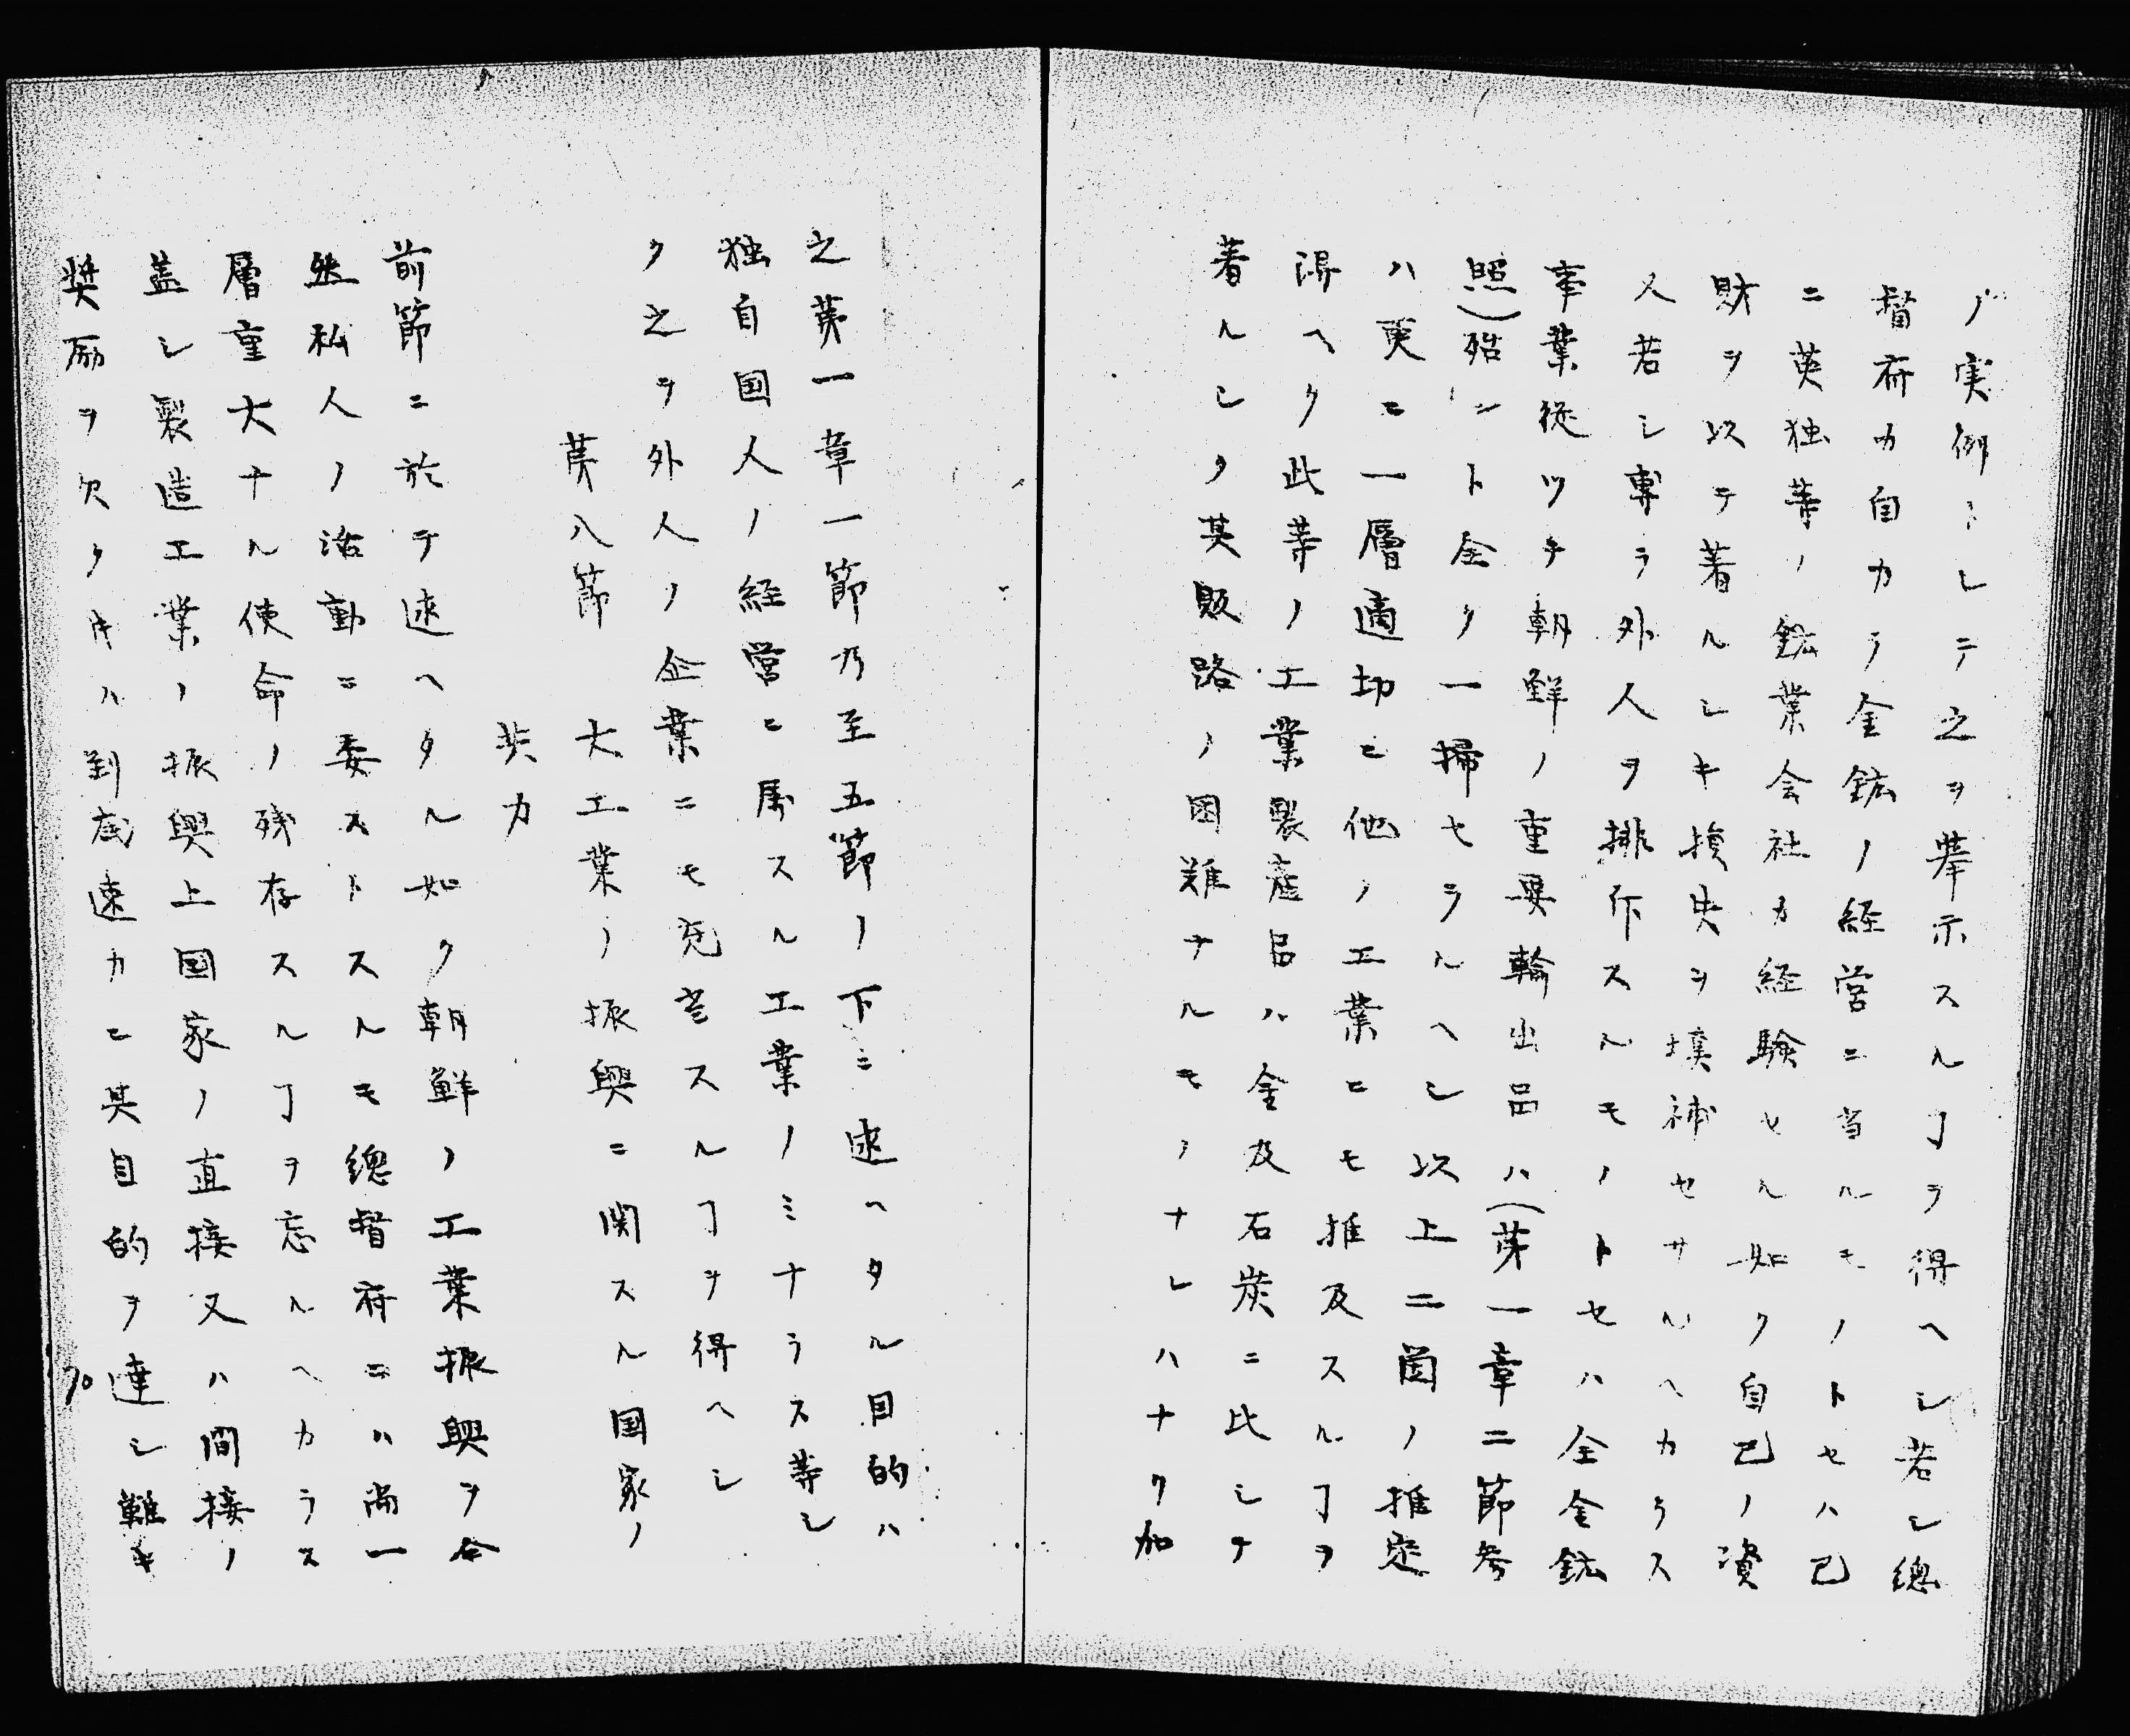 ノ実例トシテ之ヲ挙示スルヿヲ得ヘシ若シ總
督府カ自カラ金鉱ノ経営ニ当ルモノトセハ已
ニ英独等ノ鉱業会社カ経験セル如ク自己ノ資
財ヲ以テ著ルシキ損失ヲ填補セサルヘカラス
又若シ専ラ外人ヲ排斥スルモノトセハ全金鉱
事業従ツテ朝鮮ノ重要輸出品ハ(第一章二節参
照)殆ント全ク一掃セラルヘシ以上二箇ノ推定
ハ更ニ一層適切ニ他ノ工業ニモ推及スルヿヲ
得ヘク此等ノ工業製産品ハ金及石炭ニ比シテ
著ルシク其販路ノ困難ナルモノナレハナク加
之第一章一節乃至五節ノ下ニ述ヘタル目的ハ
独自国人ノ経営ニ属スル工業ノミナラス等シ
ク之ヲ外人ノ企業ニモ充当スルヿヲ得ヘシ
第八節 大工業ノ振興ニ関スル国家ノ
共力
前節ニ於テ述ヘタル如ク朝鮮ノ工業振興ヲ全
然私人ノ活動ニ委ストスルモ總督府ニハ尚一
層重大ナル使命ノ残存スルヿヲ忘ルヘカラス
蓋シ製造工業ノ振興上国家ノ直接又ハ間接ノ
奨励ヲ欠クキハ到底速カニ其目的ヲ達シ難キ
70